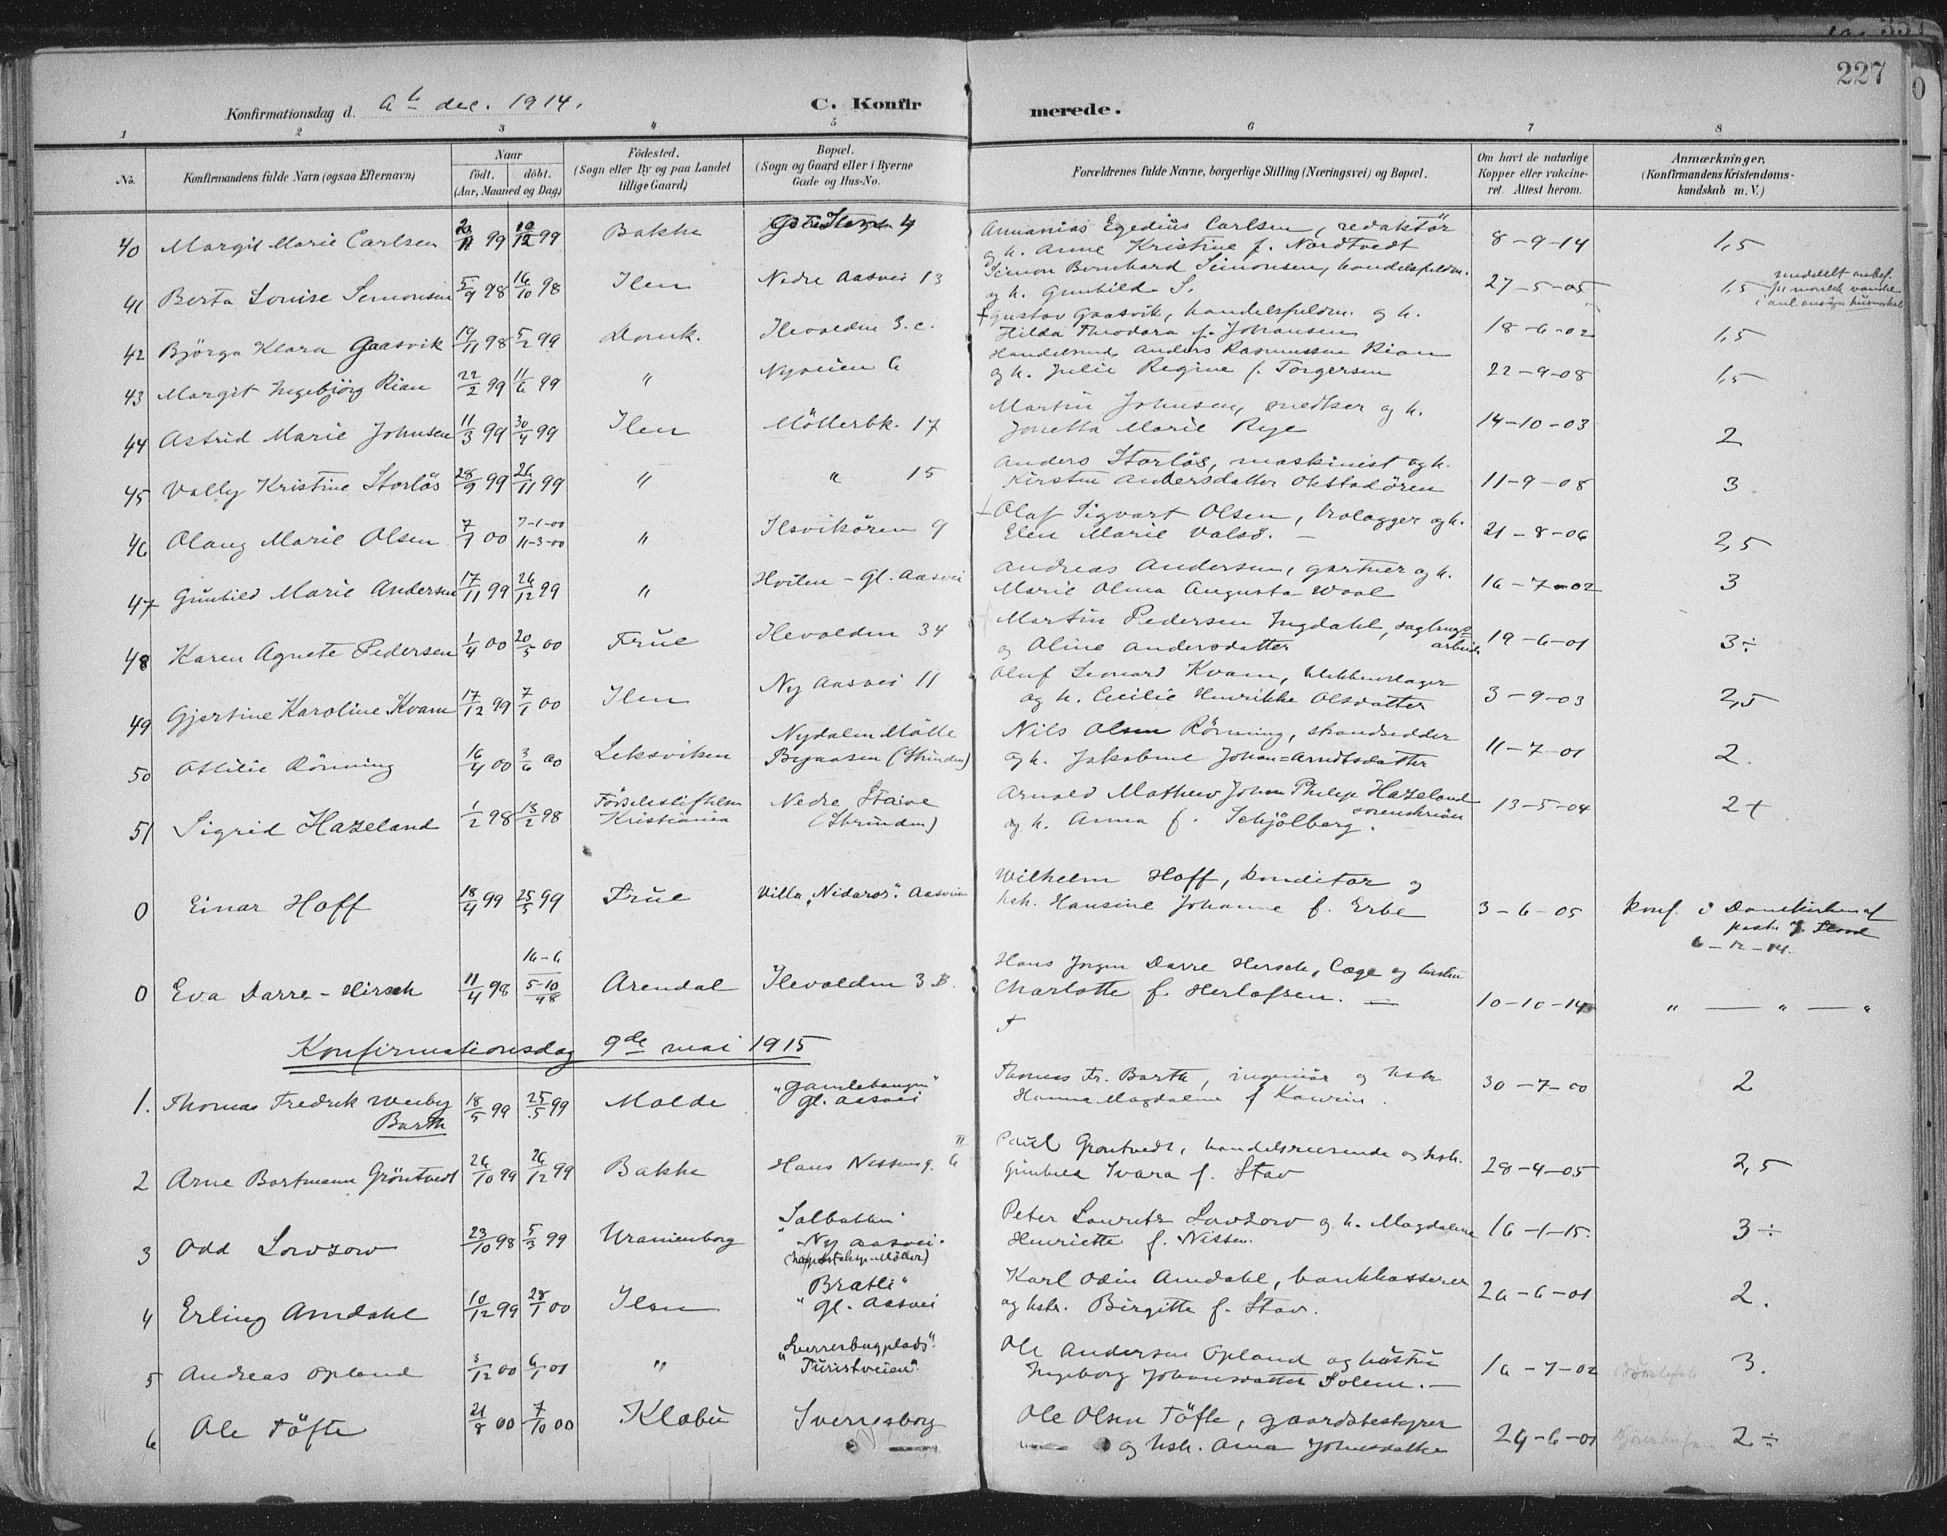 227
Konfirmationsdag d. 6te dec. 1914.
C. Konfirmerede.
1 2 3 4 5 6 7 8
No.
Konfirmandens fulde Navn (ogsaa Efternavn)
Naar
født. døbt.
(Aar, Maaned og Dag)
Fødested.
(Sogn eller By og paa Landet
tillige Gaard)
Bopæl.
(Sogn og Gaard eller i Byerne
Gade og Hus-No.
Forældrenes fulde Navne, borgerlige Stilling (Næringsvei) og Bopæl.
Om havt de naturlige
Kopper eller vakcine-
ret. Attest herom.
Anmærkninger,
(Konfirmandens Kristendoms-
kundskab m. V.)
40 Margit Marie Carlsen 20/11 99 10/12 99 Bakke 4 Ananias Egedius Carlsen, redaktör
og h. Anne Kristine f. Nordtvedt 8-9-14 1,5
41 Berta Louise Simonsen 5/9 98 16/10 98 Ilen Nedre Aasvei 13 Simon Bernhard Simonsen, handelsfuldm.
og h. Gunhild S. 27-5-05 1,5
42 Björga Klara Gaasvik 19/11 98 5/2 99 Domk. Ilevolden 3.c. + Gustav Gaasvik, handelsfuldm. og h.
Hilda Theodora f. Johansen 18-6-02 1,5
43 Margit Ingebjörg Rian 22/2 99 11/6 99 " Nyveien 6 Handelsmd. Anders Rasmussen Rian
og h. Julie Regine f. Torgersen 22-9-08 1,5
44 Astrid Marie Johnsen 11/3 99 30/4 99 Ilen Möllerbk. 17 Martin Johnsen, snedker og h.
Jonetta Marie Rye 14-10-03 2
45 Vally Kristine Storløs 28/9 99 26/11 99 " " 15 Anders Storløs, maskinist og h.
Kirsten Andersdatter Okstadören 11-9-08 3
46 Olaug Marie Olsen 7/7 00 7-1-00
11-3-00 " Ilsvikören 9 + Olaf Sigvart Olsen, og h.
Elen Marie Valsö. — 21-8-06 2,5
47 Gunhild Marie Andersen 17/11 99 26/12 99 " Hvilen - Gl. Aasvei Andreas Andersen, gartner og h.
Marie Olina Augusta Waal 16-7-02 3
48 Karen Agnete Pedersen 1/4 00 20/5 00 Frue Ilevolden 34 Martin Pedersen Ingdahl, sagbrugs-
og Aline Andersdatter arbeider 19-6-01 3÷
49 Gjertine Karoline Kvam 17/12 99 7/1 00 Ilen Ny Aasvei 11 Oluf Leonard Kvam, blikkenslager
og h. Cecilie Henrikke Olsdatter 3-9-03 2,5
50 Ottilie Rönning 16/4 00 3/6 00 Leksviken Nydalen Mölle
Byaasen (Strinden) Nils Olsen Rönning, strandsidder
og h. Jakobine Johan=Arndtsdatter 11-7-01 2.
51 Sigrid Hazeland 1/2 98 13/2 98 Fødselsstiftelsen
Kristiania Nedre Staive
(Strinden) Arnold Mathew Johan Philip Hazeland
og h. Anna f. Schjölberg. sorenskriver 13-5-04 2+
0 Einar Hoff 18/4 99 25/5 99 Frue Villa „Nidaros". Aasveien Wilhelm Hoff, konditor og
hsh. Hansine Johanne f. Erbe 3-6-05 konf. i Domkirken af
6-12-14.
0 Eva Darre-Hirsch 11/4 98 16-6
5-10/98 Arendal Ilevolden 3 B. Hans Jørgen Darre Hirsch, læge og hustru
Charlotte f. Herlofsen. — 10-10-14 " — " — "
Konfirmationsdag 9de mai 1915
1. Thomas Fredrik Weiby
Barth 18/5 99 25/5 99 Molde „Gamlehaugen"
Gl. Aasvei Thomas Fr. Barth, ingeniör og hstr
Hanna Magdalene f. 30-7-00 2
2 Arne Bartmann Gröntvedt 26/10 99 26/12 99 Bakke Hans Nissens g. 6 Paul Grøntvedt, handelsreisende og hsh.
Gunhild Ivara f. Stav 28-4-05 2,5
3 Odd Lowzow 23/10 98 5/3 99 Uranienborg „Solbakken"
Ny Aasvei. Peter Lauritz Lowzow og h. Magdalene
Henriette f. Nissen. 16-1-15. 3÷
4 Erling Amdahl 10/12 99 28/1 00 Ilen „Bratli"
Gl. Aasvei Karl Odin Amdahl, bankkasserer
og hstr. Birgitte f. Stav. 26-6-01 2.
5 Andreas Opland 3/12 00 6/1 01 " „Sverresborgplads"
„Turistveien". Ole Andersen Opland og hustru
Ingeborg Johansdatter Solem. — 16-7-02 3.
6 Ole Töfte 21/8 00 7/10 00 Klæbu Sverresborg Ole Olsen Töfte, gaardsbestyrer
og hsh. Ana Johnsdatter 24-6-01 2÷